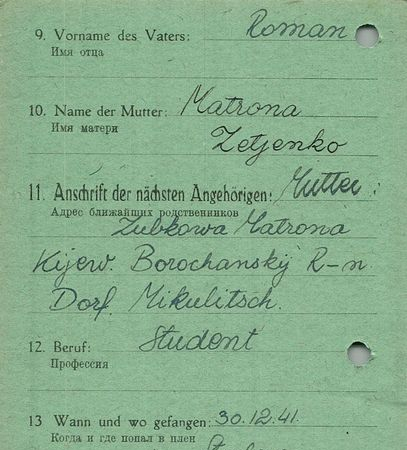 9. Vorname des Vaters: Roman
Имя отца
10. Name der Mutter: Matrona
Имя матери
Zetjenko
11. Anschrift der nächsten Angehörigen: Mutter:
Адрес ближайших родственников
Zubkowa Matrona
Kijew. Borochanský R-n.
Dorf Mikulitsch.
12. Beruf: Student
Профессия
13 Wann und wo gefangen: 30.12.41.
Когда и где попал в плен